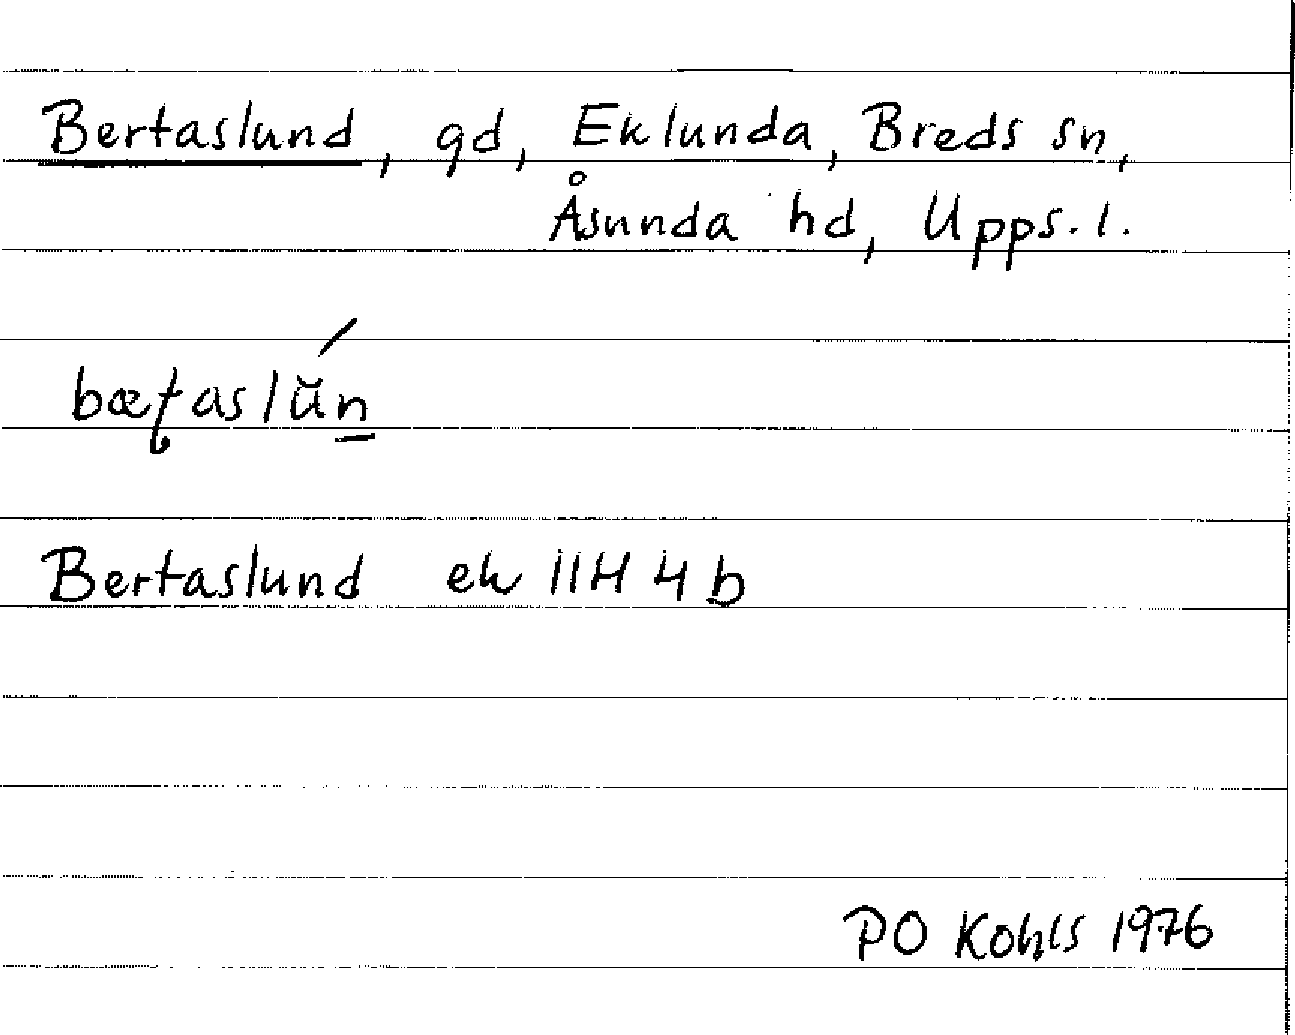 Bertaslund, gd, Eklunda, Breds sn,
Åsunda hd, Upps. l.
bæʈaslŭ́n̲
Bertaslund ek 11H 4b
PO Kohls 1976